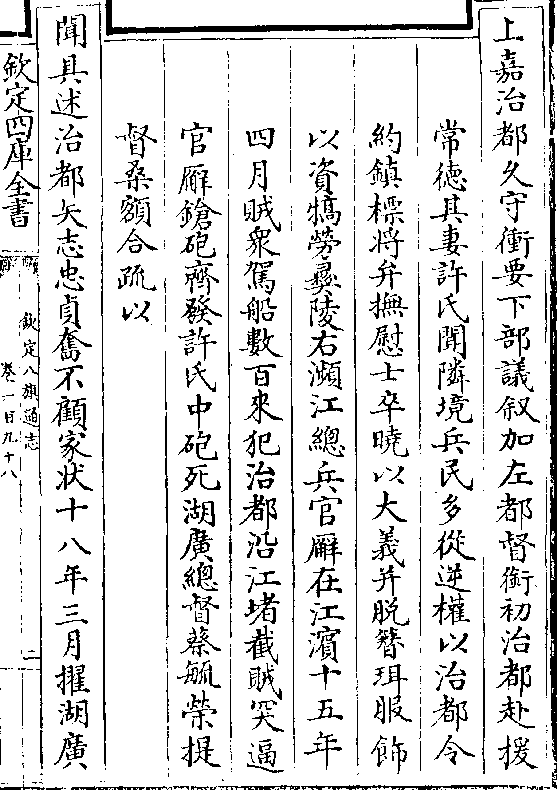 上嘉治都久守衝要下部議叙加左都督銜初治都赴援
常徳其妻許氏聞隣境兵民多從逆權以治都令
約鎮標將弁撫慰士卒曉以大義并脱簪珥服飾
以資犒勞彝陵右瀕江總兵官廨在江濵十五年
四月賊衆駕船數百來犯治都沿江堵截賊突逼
官廨鎗砲齊發許氏中砲死湖廣總督蔡毓榮提
督桑額合疏以
聞具述治都矢志忠貞奮不顧家状十八年三月擢湖廣
欽定四庫全書
欽定八旗通志
卷一百九十八
二